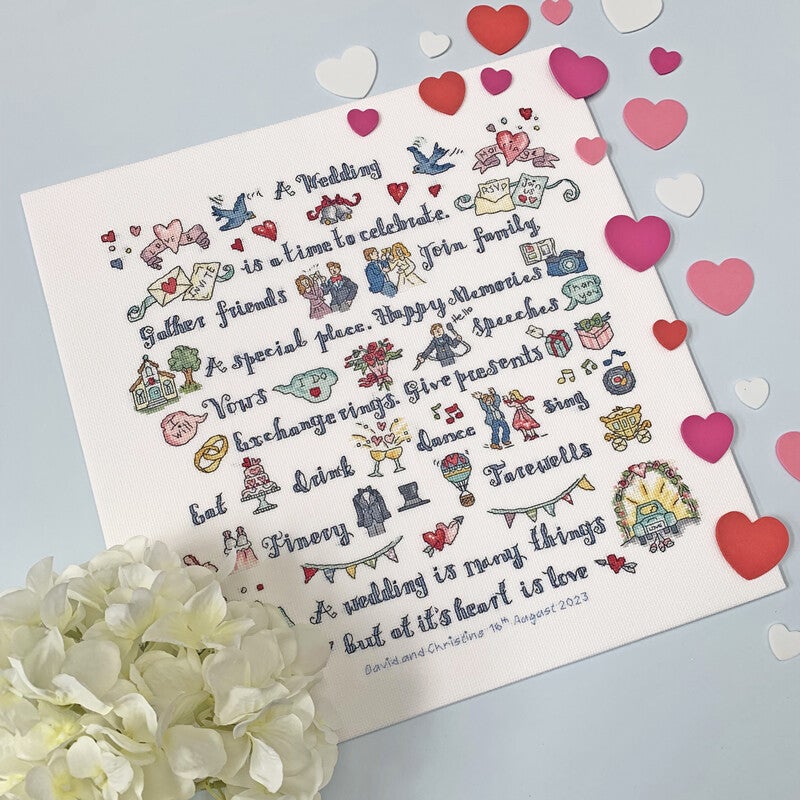 A Wedding
LOVE &
MARRIAGE
is a time to celebrate.
RSVP
Join us
INVITE
Gather friends
Join family
A special place. Happy Memories
Hello
Speeches
Thank you
Vows
I DO
Exchange rings. Give presents
I Will
Eat
Drink
Dance
Sing
Finery
Farewells
A wedding is many things
LOVE
but at it's heart is love
David and Christine 18th August 2023